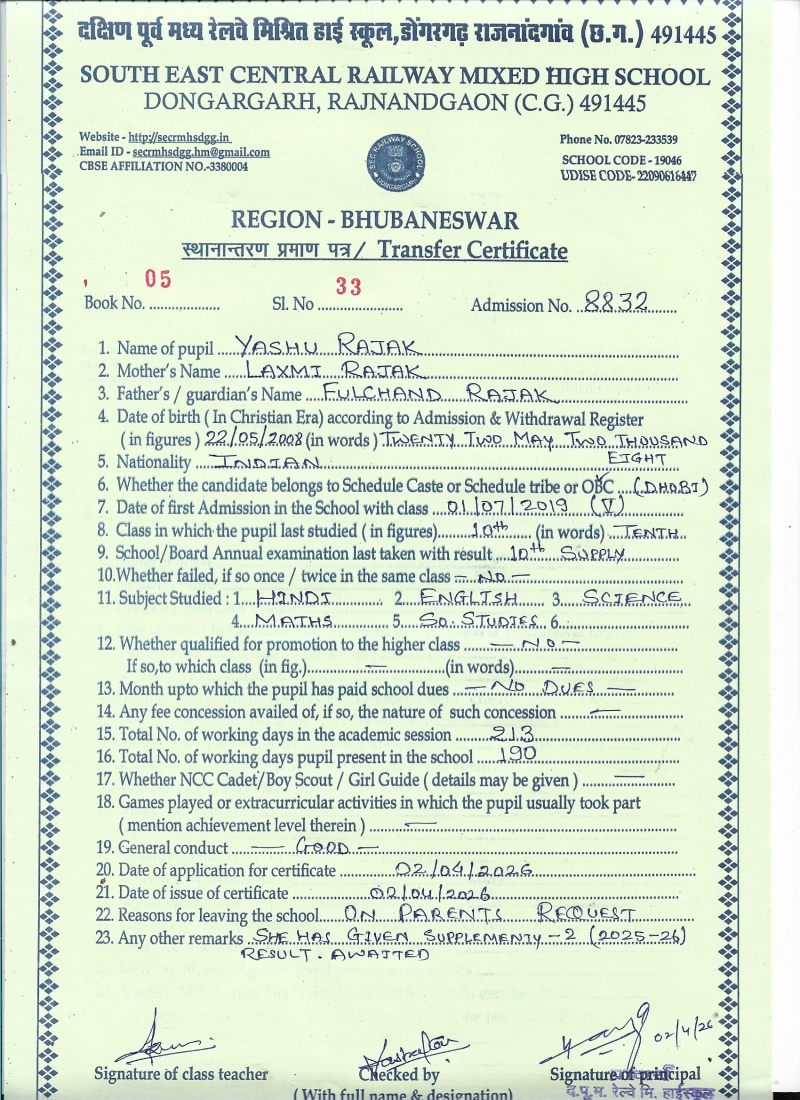 दक्षिण पूर्व मध्य रेलवे मिश्रित हाई स्कूल,डोंगरगढ़ राजनांदगांव (छ.ग.) 491445
SOUTH EAST CENTRAL RAILWAY MIXED HIGH SCHOOL
DONGARGARH, RAJNANDGAON (C.G.) 491445
Website - http://secrmhsdgg.in
Phone No. 07823-233539
Email ID - secrmhsdgg.hm@gmail.com
SCHOOL CODE - 19046
CBSE AFFILIATION NO.-3380004
UDISE CODE- 22090616447
SEC RAILWAY SCHOOL
DONGARGARH
REGION - BHUBANESWAR
स्थानान्तरण प्रमाण पत्र / Transfer Certificate
Book No. 05 Sl. No 33 Admission No. 8832
1. Name of pupil YASHU RAJAK
2. Mother's Name LAXMI RAJAK
3. Father's / guardian's Name FULCHAND RAJAK
4. Date of birth ( In Christian Era) according to Admission & Withdrawal Register
( in figures ) 22/05/2008 (in words ) TWENTY TWO MAY TWO THOUSAND
EIGHT
5. Nationality INDIAN
6. Whether the candidate belongs to Schedule Caste or Schedule tribe or OBC (DHABI)
7. Date of first Admission in the School with class 01/07/2019 (V)
8. Class in which the pupil last studied ( in figures) 10th (in words) TENTH
9. School/Board Annual examination last taken with result 10th SUPPLY
10.Whether failed, if so once / twice in the same class - NO -
11. Subject Studied : 1 HINDI 2 ENGLISH 3 SCIENCE
4 MATHS 5 SO. STUDIES 6
12. Whether qualified for promotion to the higher class - NO -
If so,to which class (in fig.) - (in words) -
13. Month upto which the pupil has paid school dues - NO DUES -
14. Any fee concession availed of, if so, the nature of such concession -
15. Total No. of working days in the academic session 213
16. Total No. of working days pupil present in the school 190
17. Whether NCC Cadet/Boy Scout / Girl Guide ( details may be given ) -
18. Games played or extracurricular activities in which the pupil usually took part
( mention achievement level therein ) -
19. General conduct - GOOD -
20. Date of application for certificate 02/04/2026
21. Date of issue of certificate 02/04/2026
22. Reasons for leaving the school ON PARENTS REQUEST
23. Any other remarks SHE HAS GIVEN SUPPLEMENTY - 2 (2025-26)
RESULT. AWAITED
02/4/26
Signature of class teacher Checked by Signature of principal
( With full name & designation)
द.पू.म. रेल्वे मि. हाईस्कूल